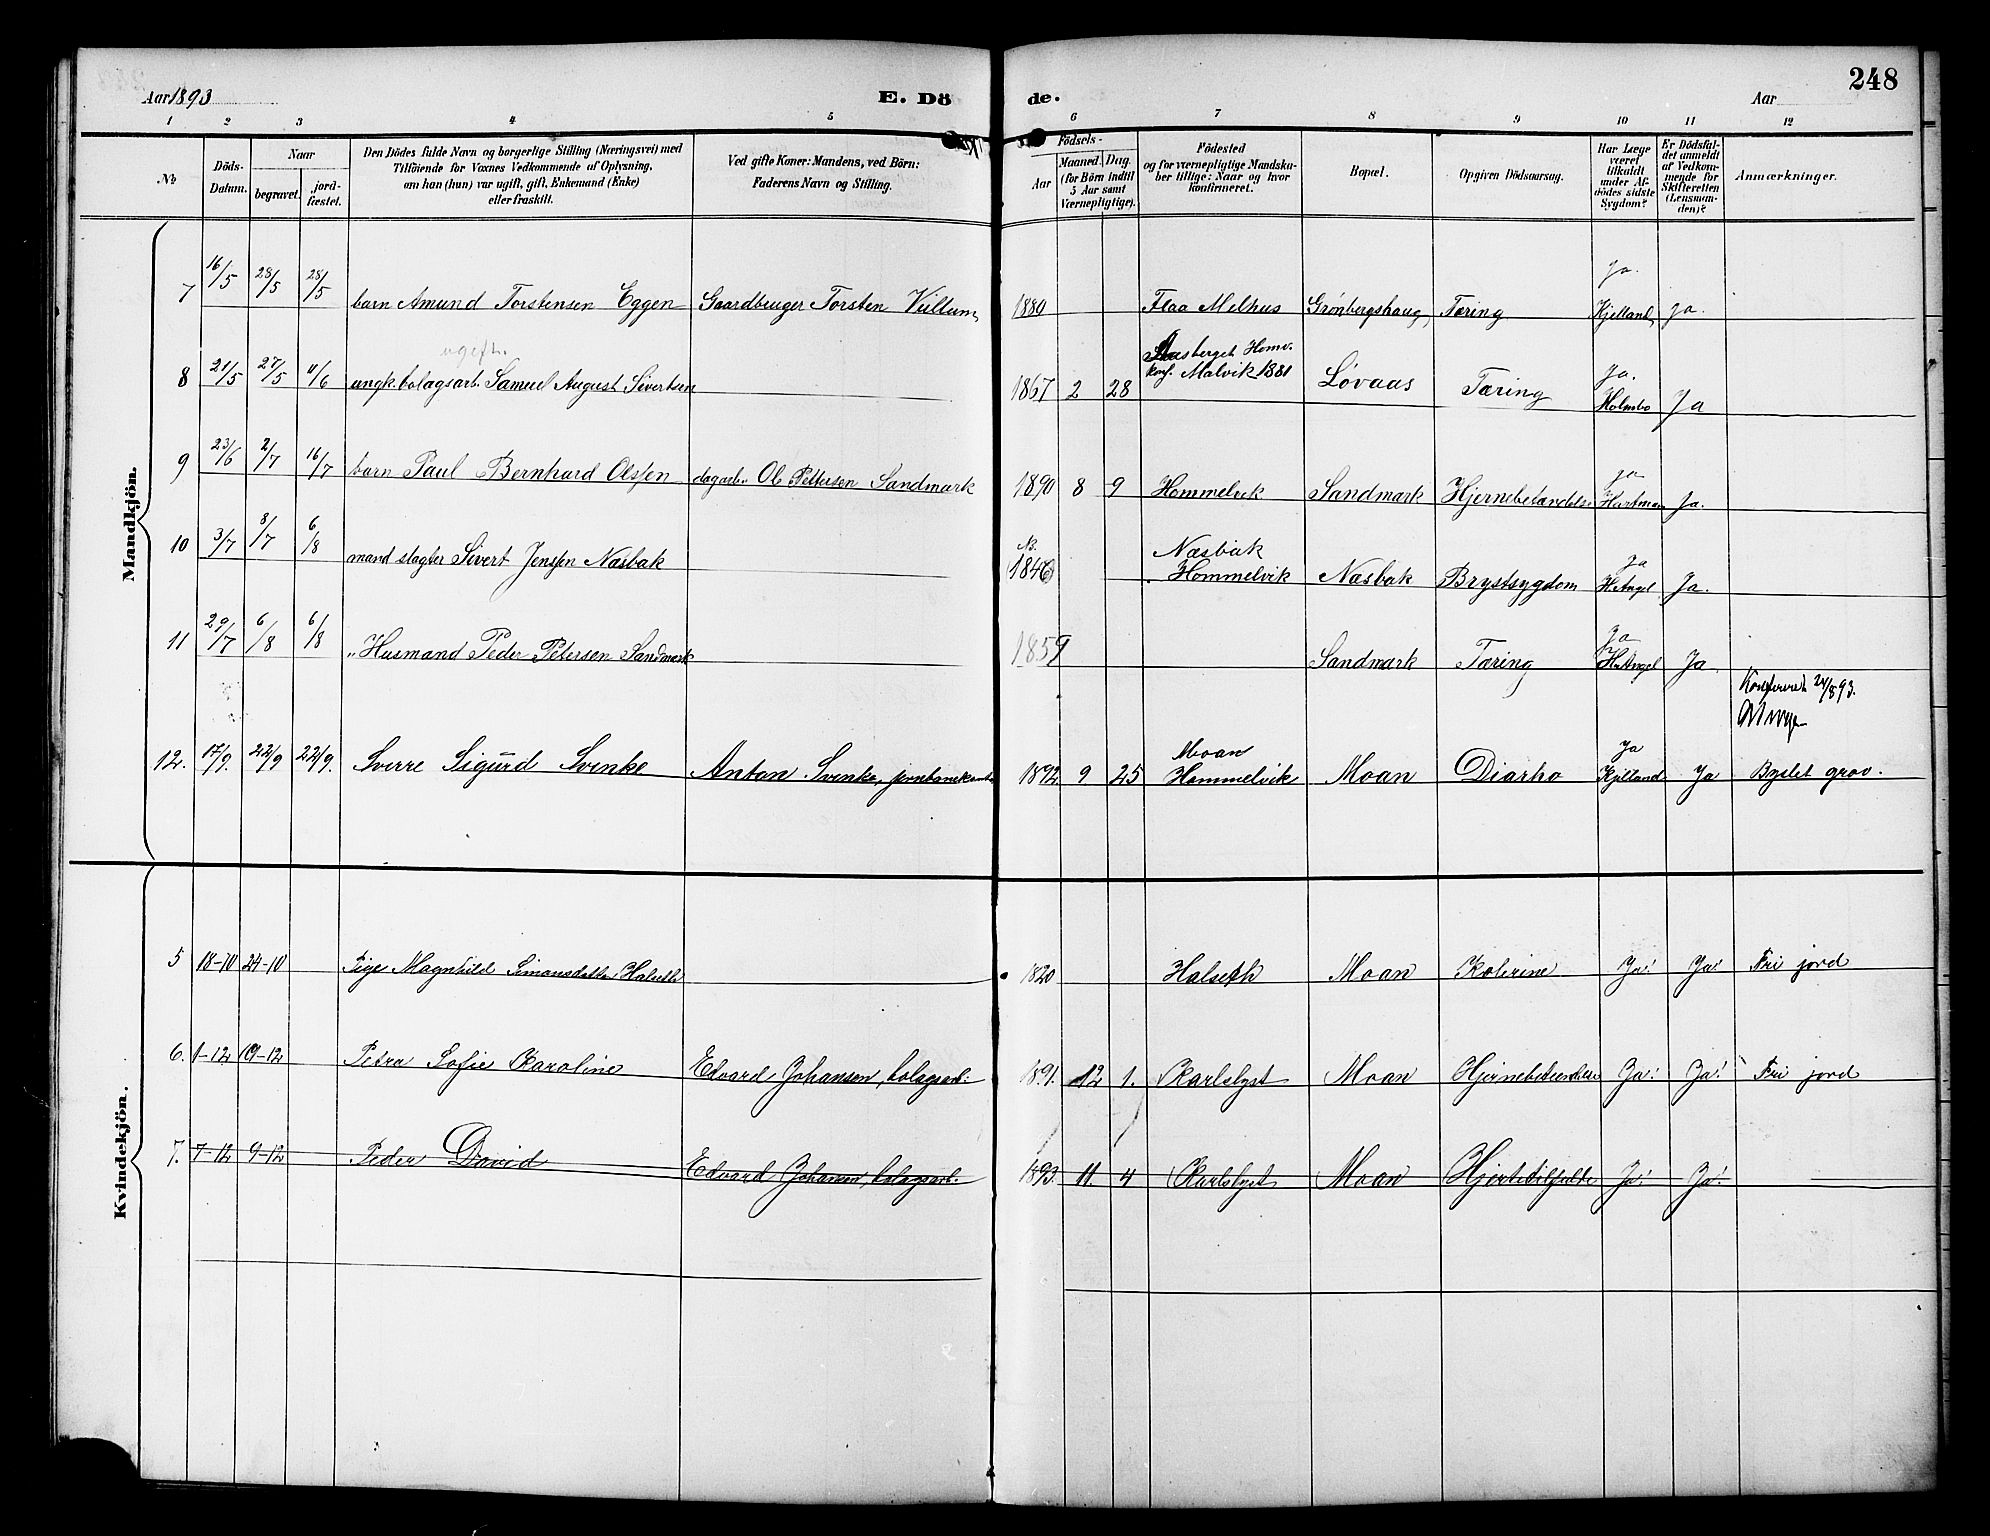 248
Aar 1893 E. Dö de. Aar
1 2 3 4 5 6 7 8 9 10 11 12
No Döds-Datum. Naar begravet. jord-fæstet. Den Dödes fulde Navn og borgerlige Stilling (Næringsvei) med Tilföiende for Voxnes Vedkommende af Oplysning, om han (hun) var ugift, gift, Enkemand (Enke) eller fraskilt. Ved gifte Koner: Mandens, ved Börn: Faderens Navn og Stilling. Födsels- Aar Maaned. Dag. (for Börn indtil 5 Aar samt Værnepligtige). Födested og for værnepligtige Mandska-ber tillige: Naar og hvor konfirmeret. Bopæl. Opgiven Dödsaarsag. Har Læge været tilkaldt under Af-dödes sidste Sygdom? Er Dödsfal-det anmeldt af Vedkom-mende for Skifteretten (Lensman-den)? Anmærkninger.
Mandkjön.
7 16/5 28/5 28/5 barn Amund Torstensen Eggen Gaardbruger Torsten 1880 Flaa Melhus Grønbergshaug Tæring Ja. Kjelland Ja.
ugift.
8 21/5 27/5 11/6 ungk. bolagsarb. Samuel August Sivertsen 1867 2 28 Homv. konf. Malvik 1881 Løvaas Tæring Ja. Holmbo Ja
9 23/6 2/7 16/7 barn Paul Bernhard Olsen dagarb. Ole Pettersen Sandmark 1890 8 9 Hommelvik Sandmark Hjernebetændelse Ja Hartman Ja.
10 3/7 8/7 6/8 mand slagter Sivert Jensen Næsbak 1846 Næsbak Hommelvik Næsbak Brystsygdom Ja H. Angel Ja.
11 29/7 6/8 6/8 " Husmand Peder Petersen Sandmark 1859 Sandmark Tæring Ja H. Angel Ja
Konfereret 24/8 93.
12. 17/9. 22/9 22/9. Sverre Sigurd Svinke Anton Svinke, jernbanekont. 1892 9 25 Moan Hommelvik Moan Diarho Ja Kjelland Ja Byslet grav.
Kvindekjön.
5 18-10 24-10 Pige Magnhild Simonsdatter Halseth 1820 Halseth Moan Kolerine Ja! Ja! Fri jord
6. 1-12 9-12 Petra Sofie Karoline Edvard Johansen, bolagsarb. 1891. 12 1. Karlslyst Moan Hjernebetændelse Ja! Ja! Fri jord
7. 7-12 9-12 Peder David Edvard Johansen, bolagsarb. 1893. 11. 4 Karlslyst Moan Hjertetilfælde Ja! Ja!